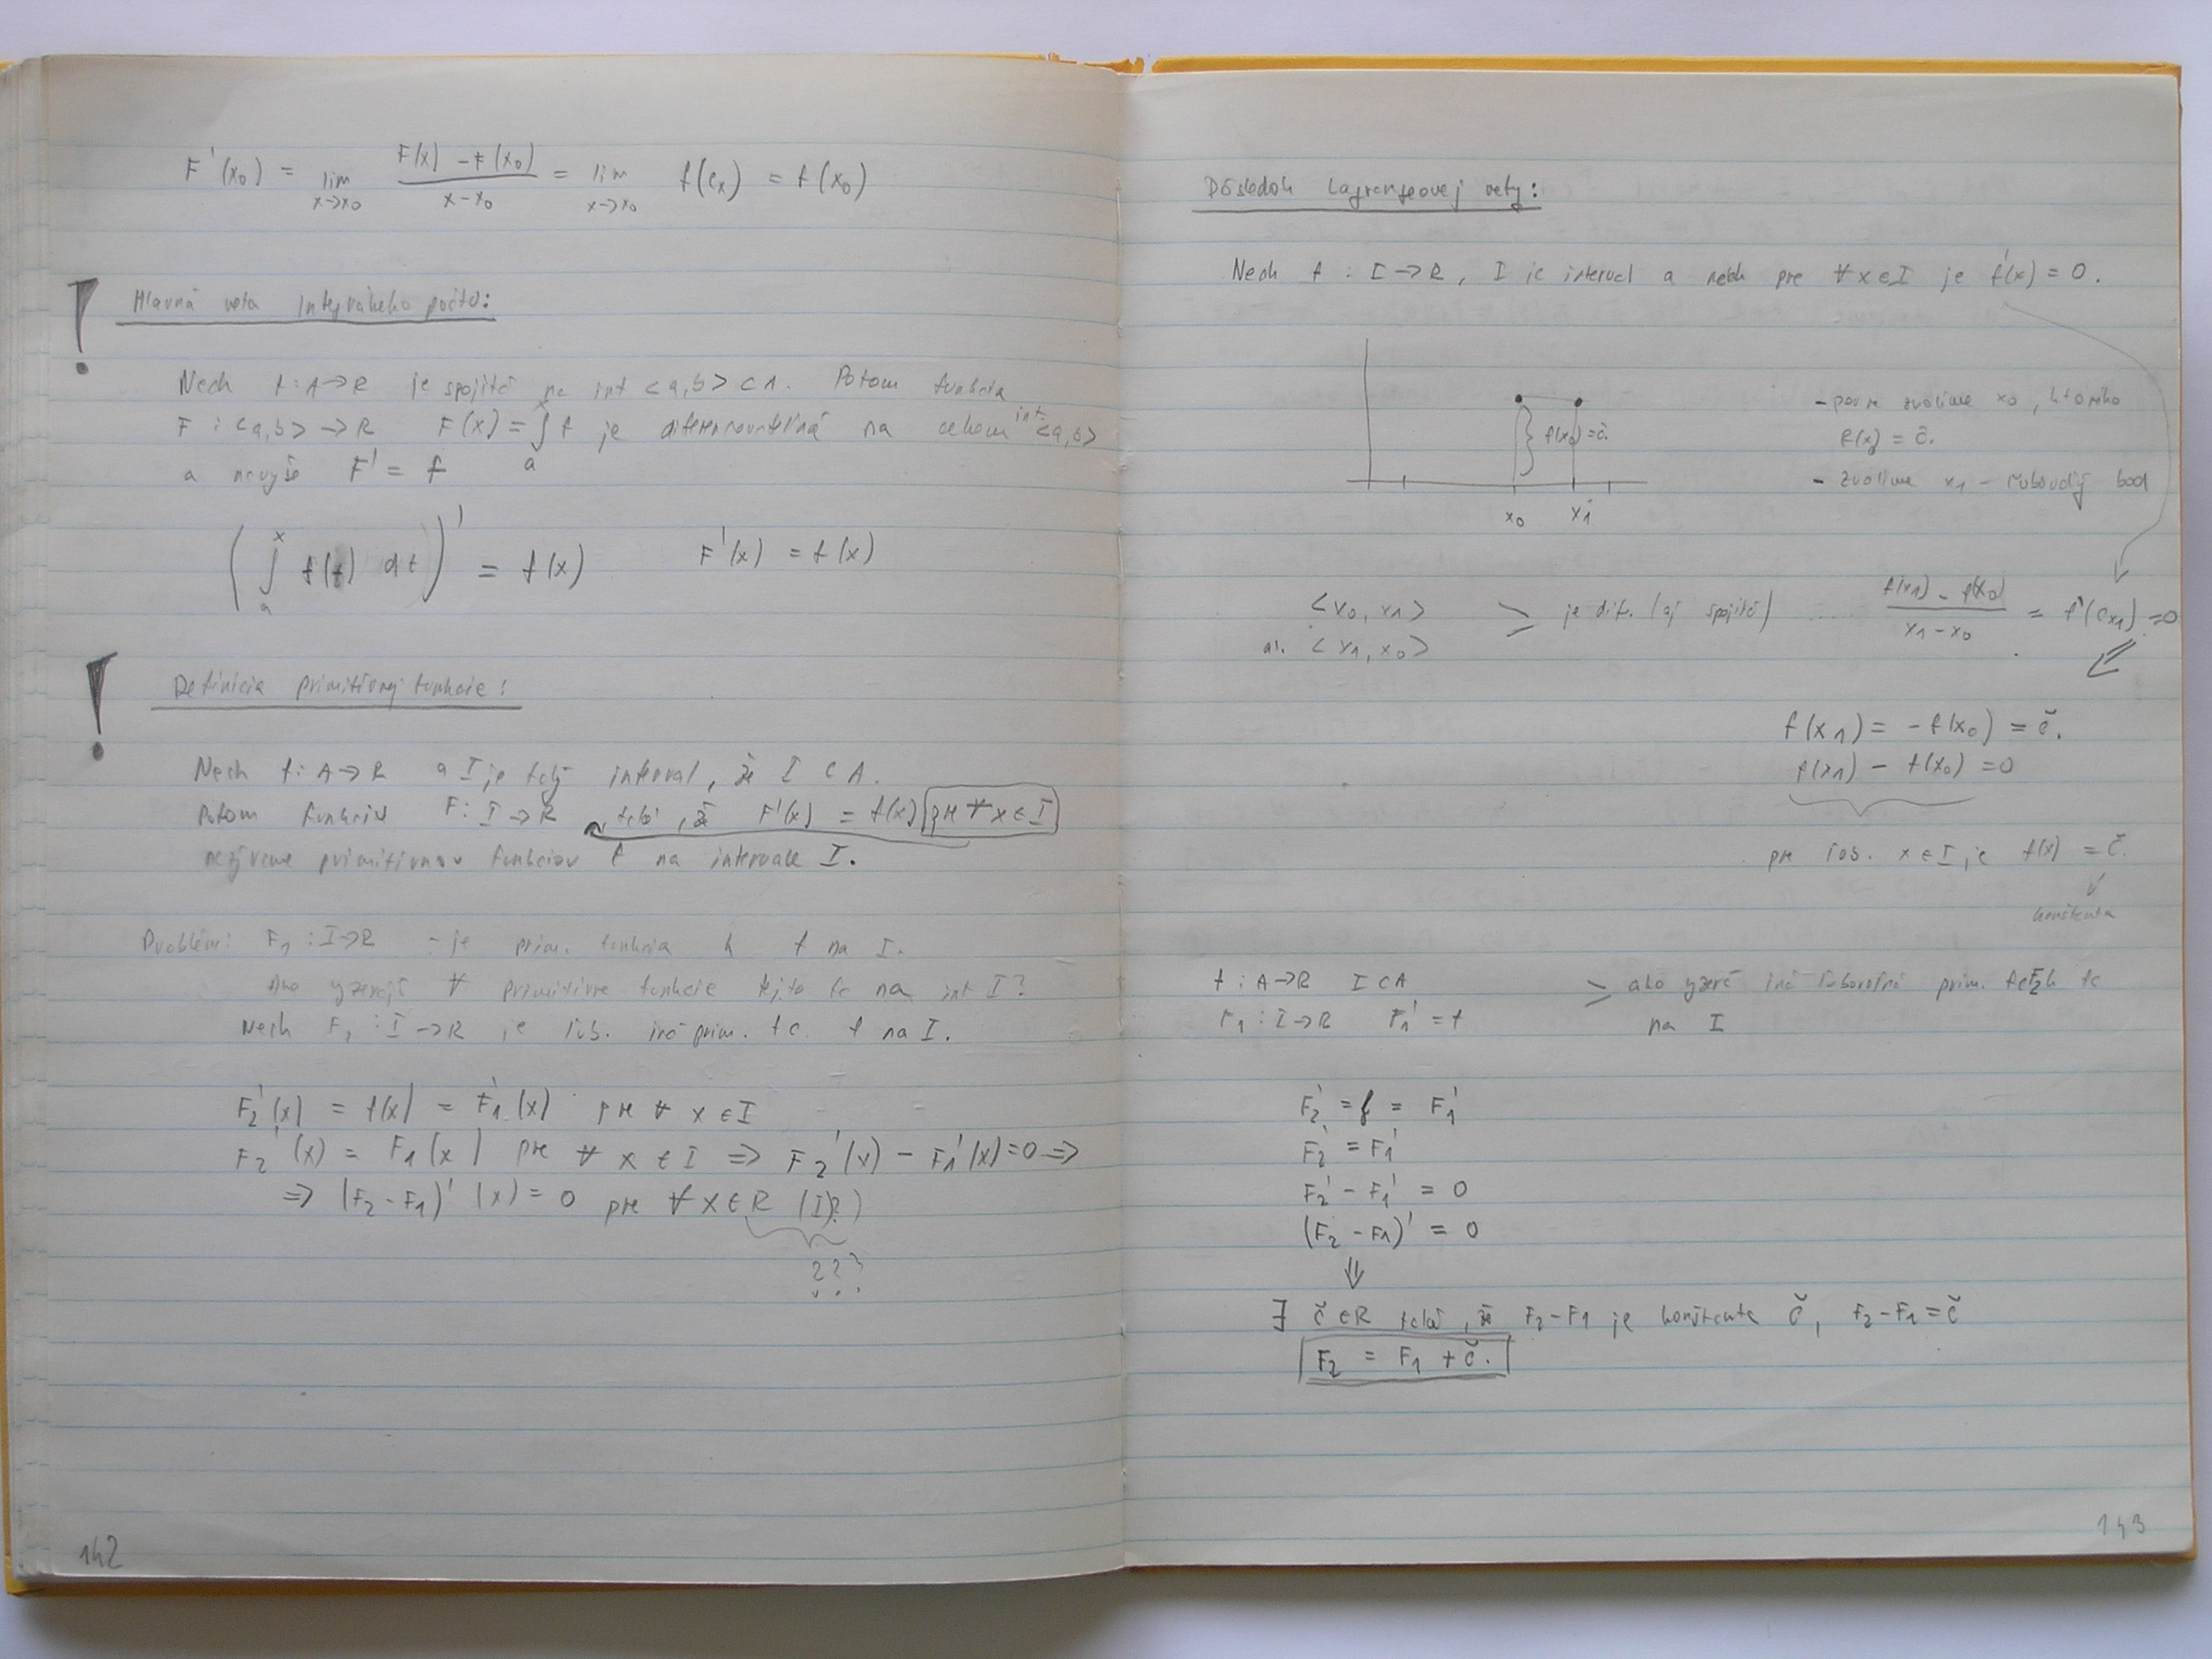 F'(x₀) = lim x→x₀ F(x) - F(x₀) / x - x₀ = lim x→x₀ f(cₓ) = f(x₀)
! Hlavná veta integrálneho počtu:
Nech f: A→R je spojitá na int <a,b> ⊂ A. Potom funkcia
F: <a,b> → R F(x) = ∫ₐˣ f je diferencovateľná na celom int. <a,b>
a navyše F' = f
(∫ₐˣ f(t) dt)' = f(x) F'(x) = f(x)
! Definícia primitívnej funkcie:
Nech f: A→R a I je taký interval, že I ⊂ A.
Potom funkciu F: I→R takú, že F'(x) = f(x) pre ∀ x ∈ I
nazývame primitívnou funkciou f na intervale I.
Problém: F₁: I→R - je prim. funkcia k f na I.
Ako vyzerajú ∀ primitívne funkcie tejto fc na int I?
Nech F₂: I→R je ľub. iná prim. fc. f na I.
F₂'(x) = f(x) = F₁'(x) pre ∀ x ∈ I
F₂'(x) = F₁(x) pre ∀ x ∈ I ⇒ F₂'(x) - F₁'(x) = 0 ⇒
⇒ (F₂ - F₁)'(x) = 0 pre ∀ x ∈ R (I?)
???
142
Dôsledok Lagrangeovej vety:
Nech f: I→R, I je interval a nech pre ∀ x ∈ I je f'(x) = 0.
- zvolíme x₀, ktorého
f(x₀) = č.
f(x) = č.
- zvolíme x₁ - ľubovoľný bod
x₀ x₁
<x₀, x₁> > je dif. (aj spojitá) ..... f(x₁) - f(x₀) / x₁ - x₀ = f'(cₓ₁) = 0
al. <x₁, x₀>
f(x₁) = - f(x₀) = č.
f(x₁) - f(x₀) = 0
pre ľub. x ∈ I, je f(x) = č.
konštanta
f: A→R I ⊂ A > ako vyzerá iná ľubovoľná prim. fc F₂ k fc
F₁: I→R F₁' = f na I
F₂' = f = F₁'
F₂' = F₁'
F₂' - F₁' = 0
(F₂ - F₁)' = 0
⇓
∃ č ∈ R také, že F₂ - F₁ je konštanta č, F₂ - F₁ = č
F₂ = F₁ + č.
143